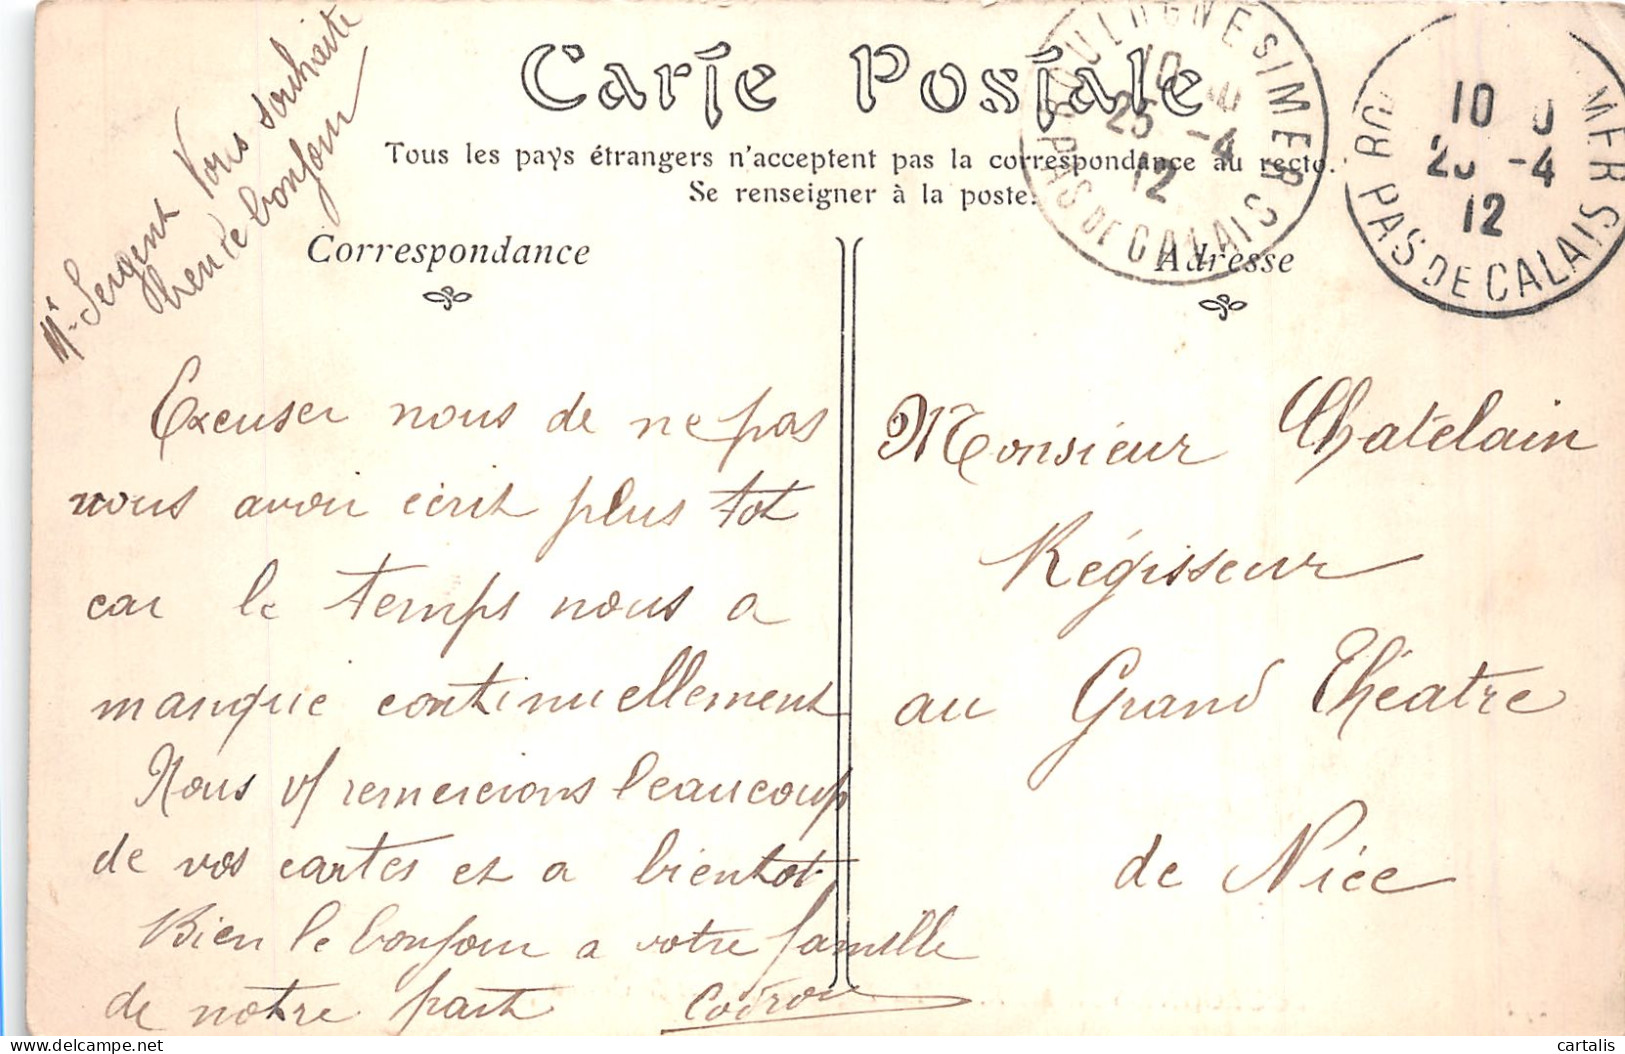 Mr Sergent Vous souhaite
bien le bonjour
Carte Postale
Tous les pays étrangers n'acceptent pas la correspondance au recto.
Se renseigner à la poste.
Correspondance
Adresse
BOULOGNE S/MER
10
25 -4
12
PAS DE CALAIS
BOU MER
10 0
25 -4
12
PAS DE CALAIS
Excuser nous de ne pas
vous avoir écrit plus tot
car le temps nous a
manque continuellement
Nous v/ remercions beaucoup
de vos cartes et a bientot.
Bien le bonjour a votre famille
de notre part Codron
Monsieur Chatelain
Régisseur
au Grand Théatre
de Nice
cartalis
delcampe.net